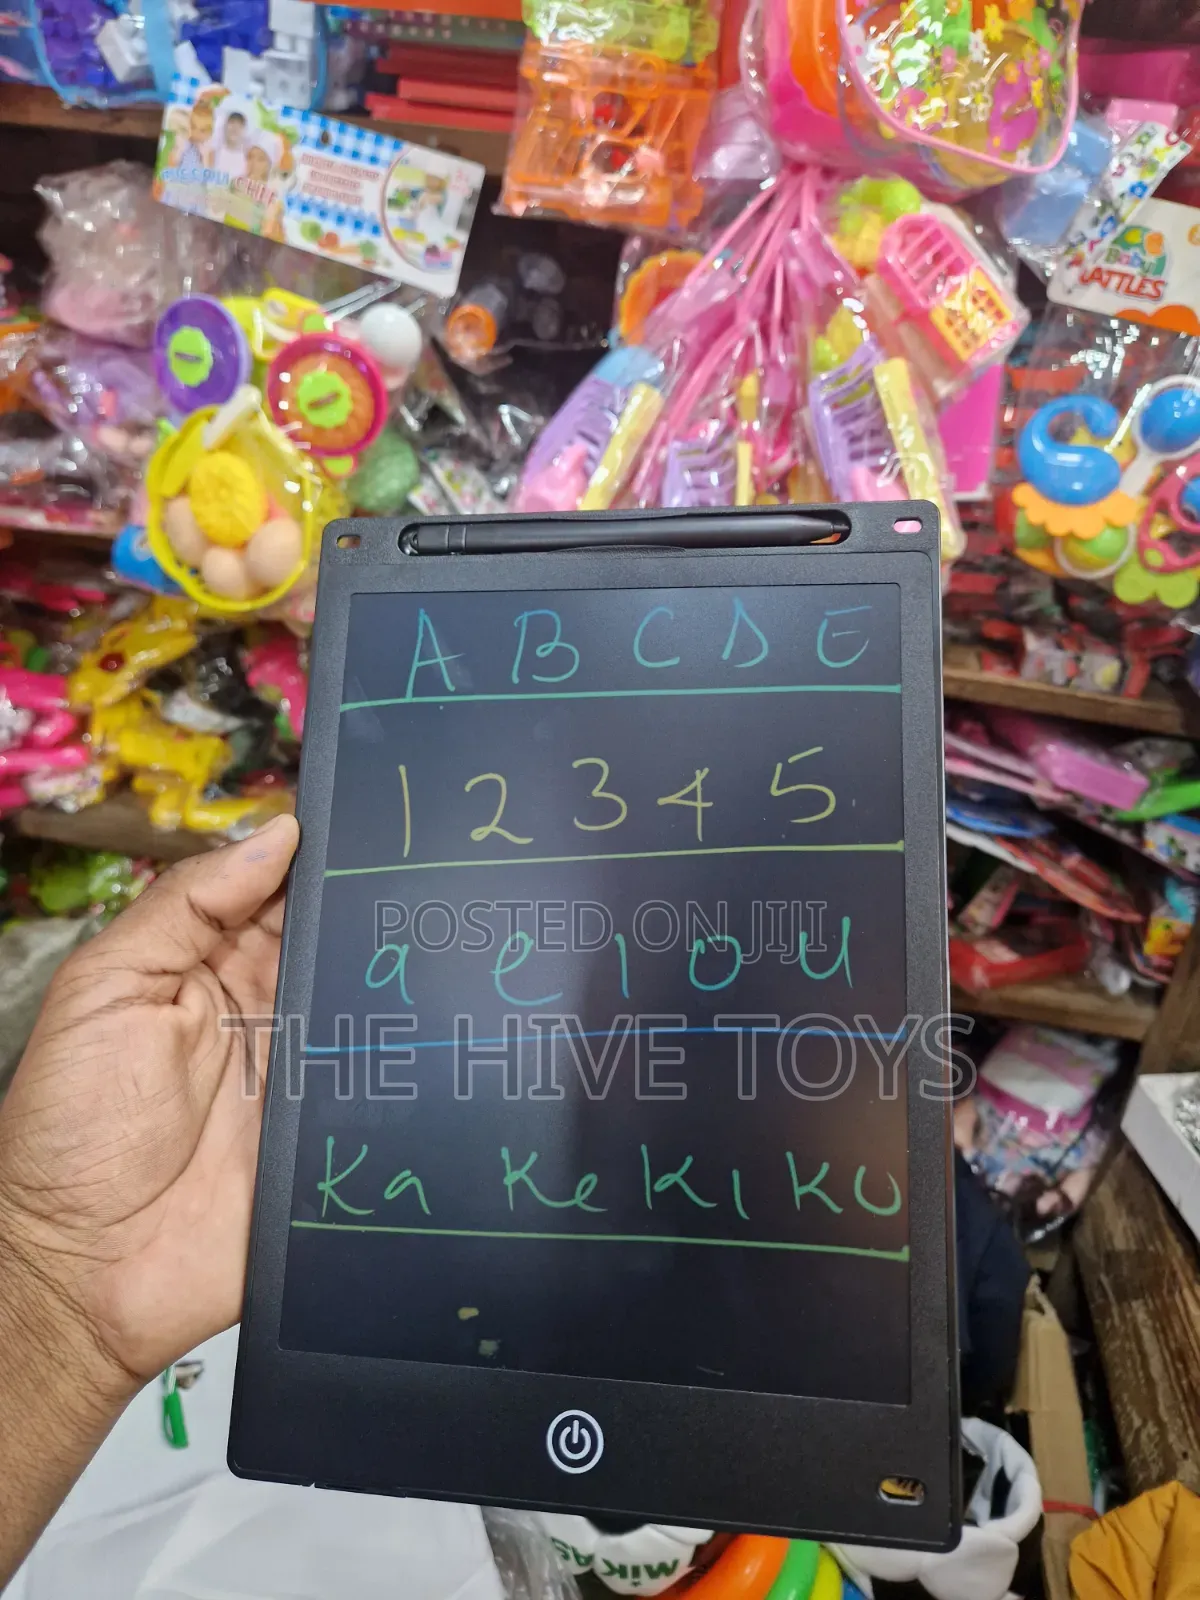 BABY
RATTLES
A B C D E
1 2 3 4 5
POSTED ON JIJI
a e i o u
THE HIVE TOYS
Ka Ke Ki Ku
MiKAS